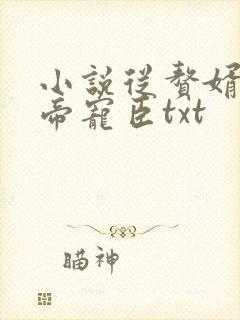 小説從贅婿
帝寵臣txt
瞄神